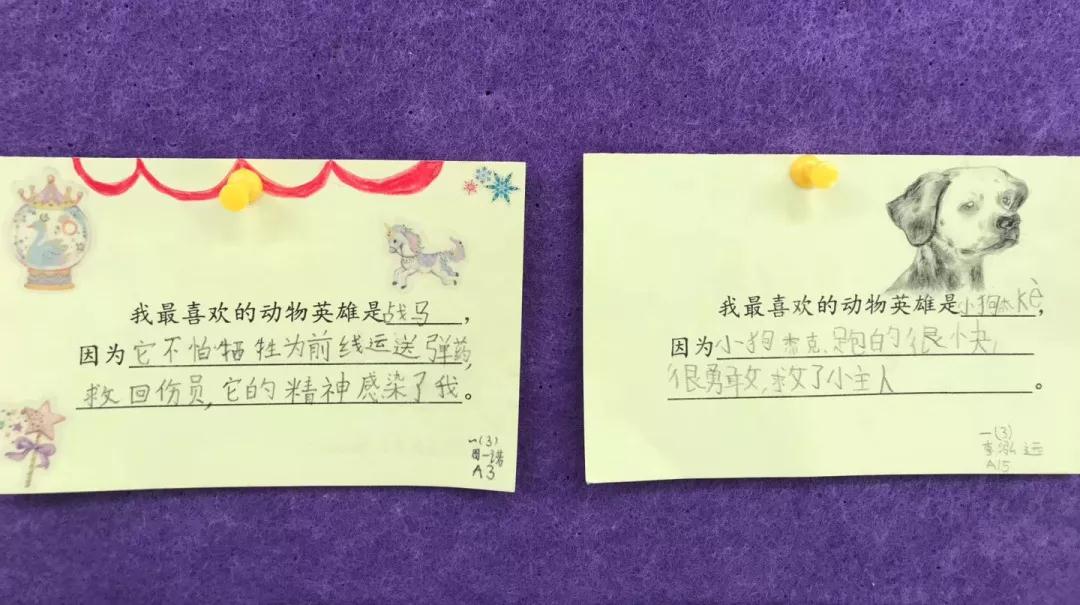 我最喜欢的动物英雄是战马，
因为它不怕牺牲为前线运送弹药，
救回伤员，它的精神感染了我。
一(3)
周一诺
A3
我最喜欢的动物英雄是小狗杰kè，
因为小狗杰克，跑的很快，
很勇敢，救了小主人。
一(3)
李泓远
A15